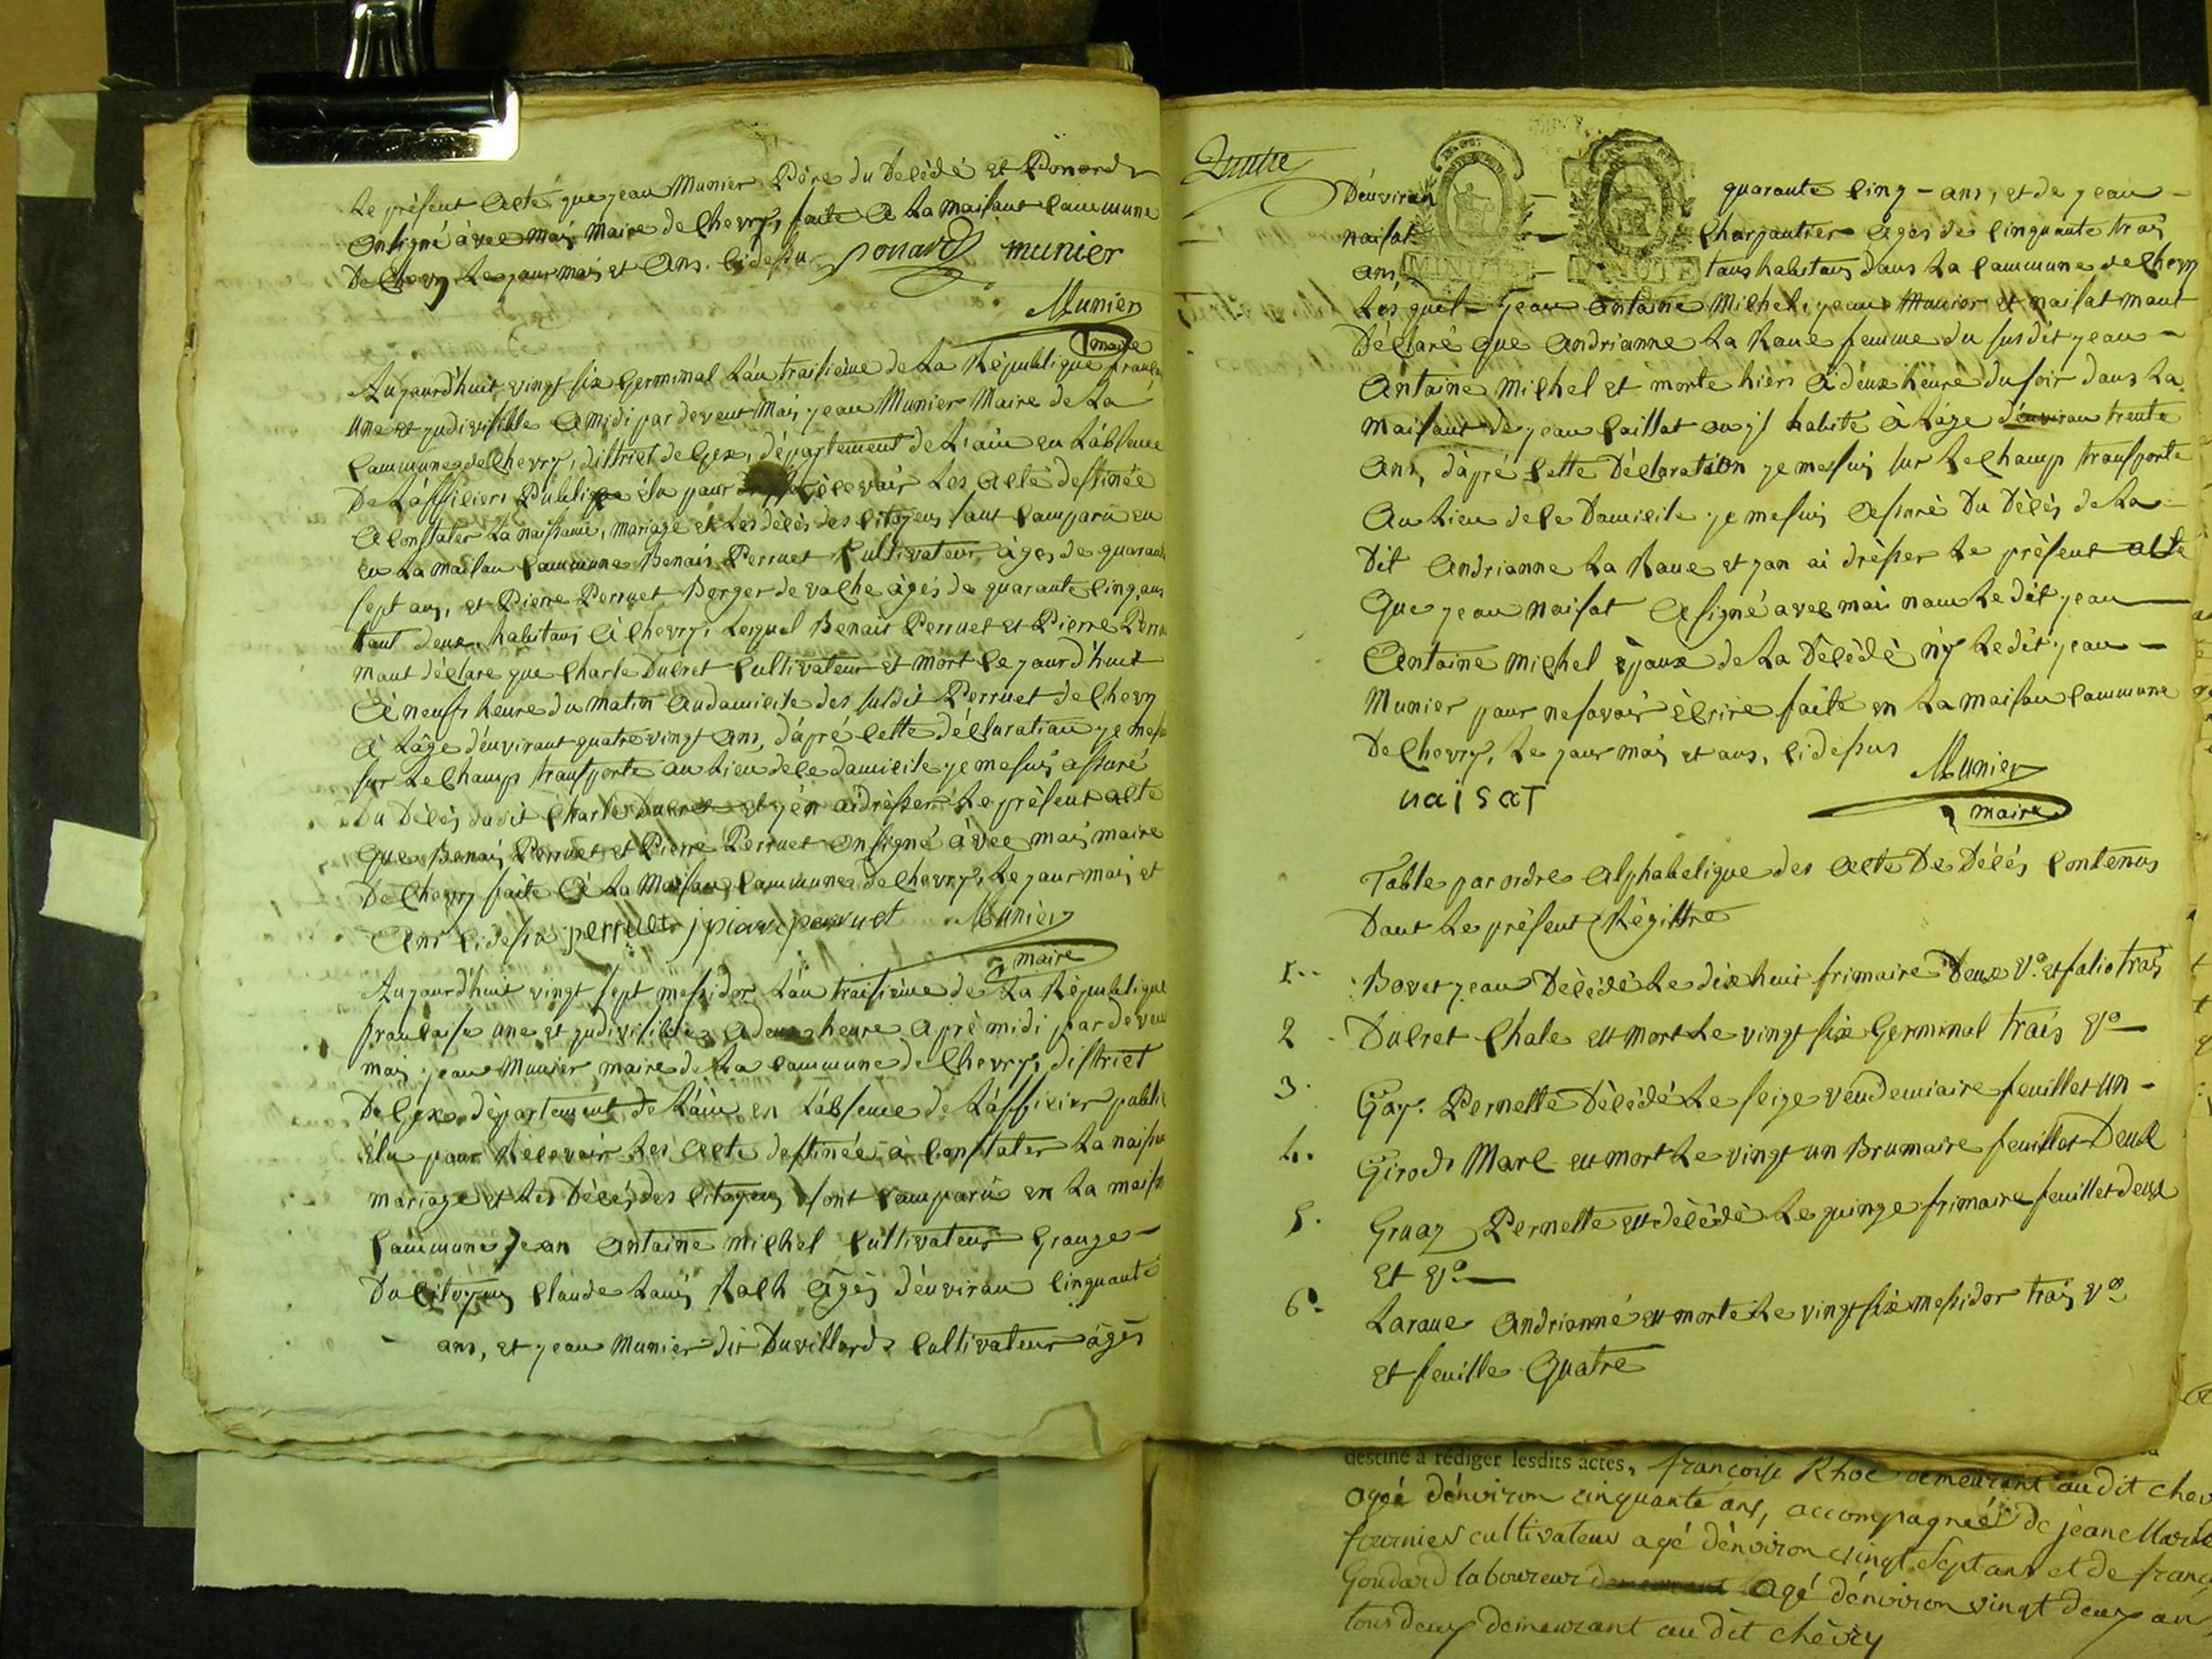 Le présent Acte que jean Munier Père du Décédé et Ponard
Onsigné àvec mai maire de Chevry, faite A La maisant Commune
De Chevry Le jour mais et Ans. Cidessu Ponard munier
Munier
maire
Aujourd'huit vingt six Germinal L'an traisième de La République français
Une et Jndivisible A midi par devent Mai jean Munier Maire de La
Commune de Chevry, district de Gex, département de L'ain en L'absence
De L'àfficier Publique élu pour Récevair Les Acte destinée
A Constater La naissance, mariage et Les décès des Citoyens, sont Camparu en
En La maisan Commune Benait Perruet Cultivateur, âgés de quarante
sept ans, et Pierre Perruet Berger de vache âgés de quarante Cinq ans
taut deux habitans à Chevry, Lequel Benait Perruet et Pierre Perru
maut déclare que Charle Ducret Cultivateur et mort Ce jourd'huit
à neufs heure du matin Audamicile des susdit Perruet de Chevry
à L'âge d'enviraut quatre vingt Ans, d'àpré Cette déclaration je mesu
sur Le Champ transporte au Lieu de Ce damicile je mesuis assuré
Du Décès dudit Charle Ducret et j'én ai drésser Le présent acte
Que Benait Perruet et Pierre Perruet Onsigné àvec mais maire
De Chevry faite à La Maisan Commune de Chevry, Le jour mais et
Ans Cidessu perruet piare peruet Munier
maire
Aujourd'huit vingt sept messidor L'an traisième de La République
francaise une et jndivisible, a deux heure aprè midi par deven
mai jean Munier maire de La Commune de Chevry, district
De Gex département de L'ain en L'absence de L'àfficier public
élu pour Récevair Les Acte destinée à Constater La naissa
mariage et Les Décès des Citoyens, sont Camparu en La maisa
Commune Jean Antaine michel Cultivateur Grange-
Du Citoyens Claude Lauis Rach Agés d'enviran Cinquante
- ans, et jean Munier dit Duvillard Cultivateur àgés
D'enviran quarante Cinq - ans, et de jean -
naisat Charpantier âgés de Cinquante trais
ans MINUTE - MINUTE taus habitans dans La Commune de Chevry
Lésquel - jean Antaine Michel, jean Munier et naisat maut
Déclaré que Andrianne La Raue femme du susdit jean -
Antaine Michel et morte hiers à deux heure du soir dans La
Maisant de jean Caillat ou jl habite à L'âge d'enviran trente
Ans, d'àpré Cette Déclaration je mesuis sur Le Champ transporte
Au Lieu de Ce Damicile je mesuis Assuré Du Décès de La
Dit Andrianne La Raue et j'an ai drésser Le présent acte
Que jean naisat A signé avec mai nau Le dit jean
Antaine michel épaux de La Décédé ny Le dit jean -
Munier paur ne savair écrire faite en La maisan Commune
De Chevry, Le jour mais et ans, Cidessus Munier
naisaT maire
Table par ordre Alphabetique des Acte De Décés Contenus
Dant Le présent Régittre
1.. Bovet jean Décédé Le dix huit frimaire Deux V.o et falio trais
2. Ducret Chale est mort Le vingt six Germinal trais Vo
3. Gay. Pernette Décédé Le seize vendemiaire feuillet un -
4. Girod Marc est mort Le vingt un Brumaire feuillet Deux
5. Gruaz Pernette est décédé Le quinze frimaire feuillet deux
Et Vo
6. Laraue Andrianne est morte Le vingt six messidor trais Vo
Et feuille Quatre
destiné à rédiger lesdits actes, françoise Rhoc demeurant au dit chev
agée dénviron cinquante ans, accompagnée de jean Marie
fournier cultivateur agé dénviron vingt Sept ans et de franç
Goudard laboureur agé dénviron vingt deux an
tous deux demeurant au dit chévry